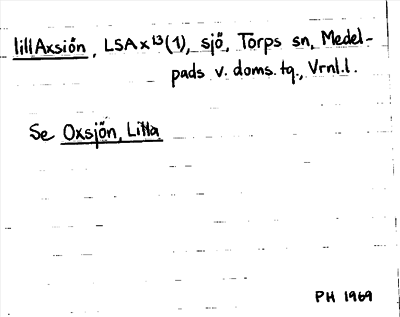 lillAxsión, LSAx13(1), sjö, Torps sn, Medel-
pads v. doms. tg., Vrnl.l.
Se Oxsjön, Lilla
PH 1969